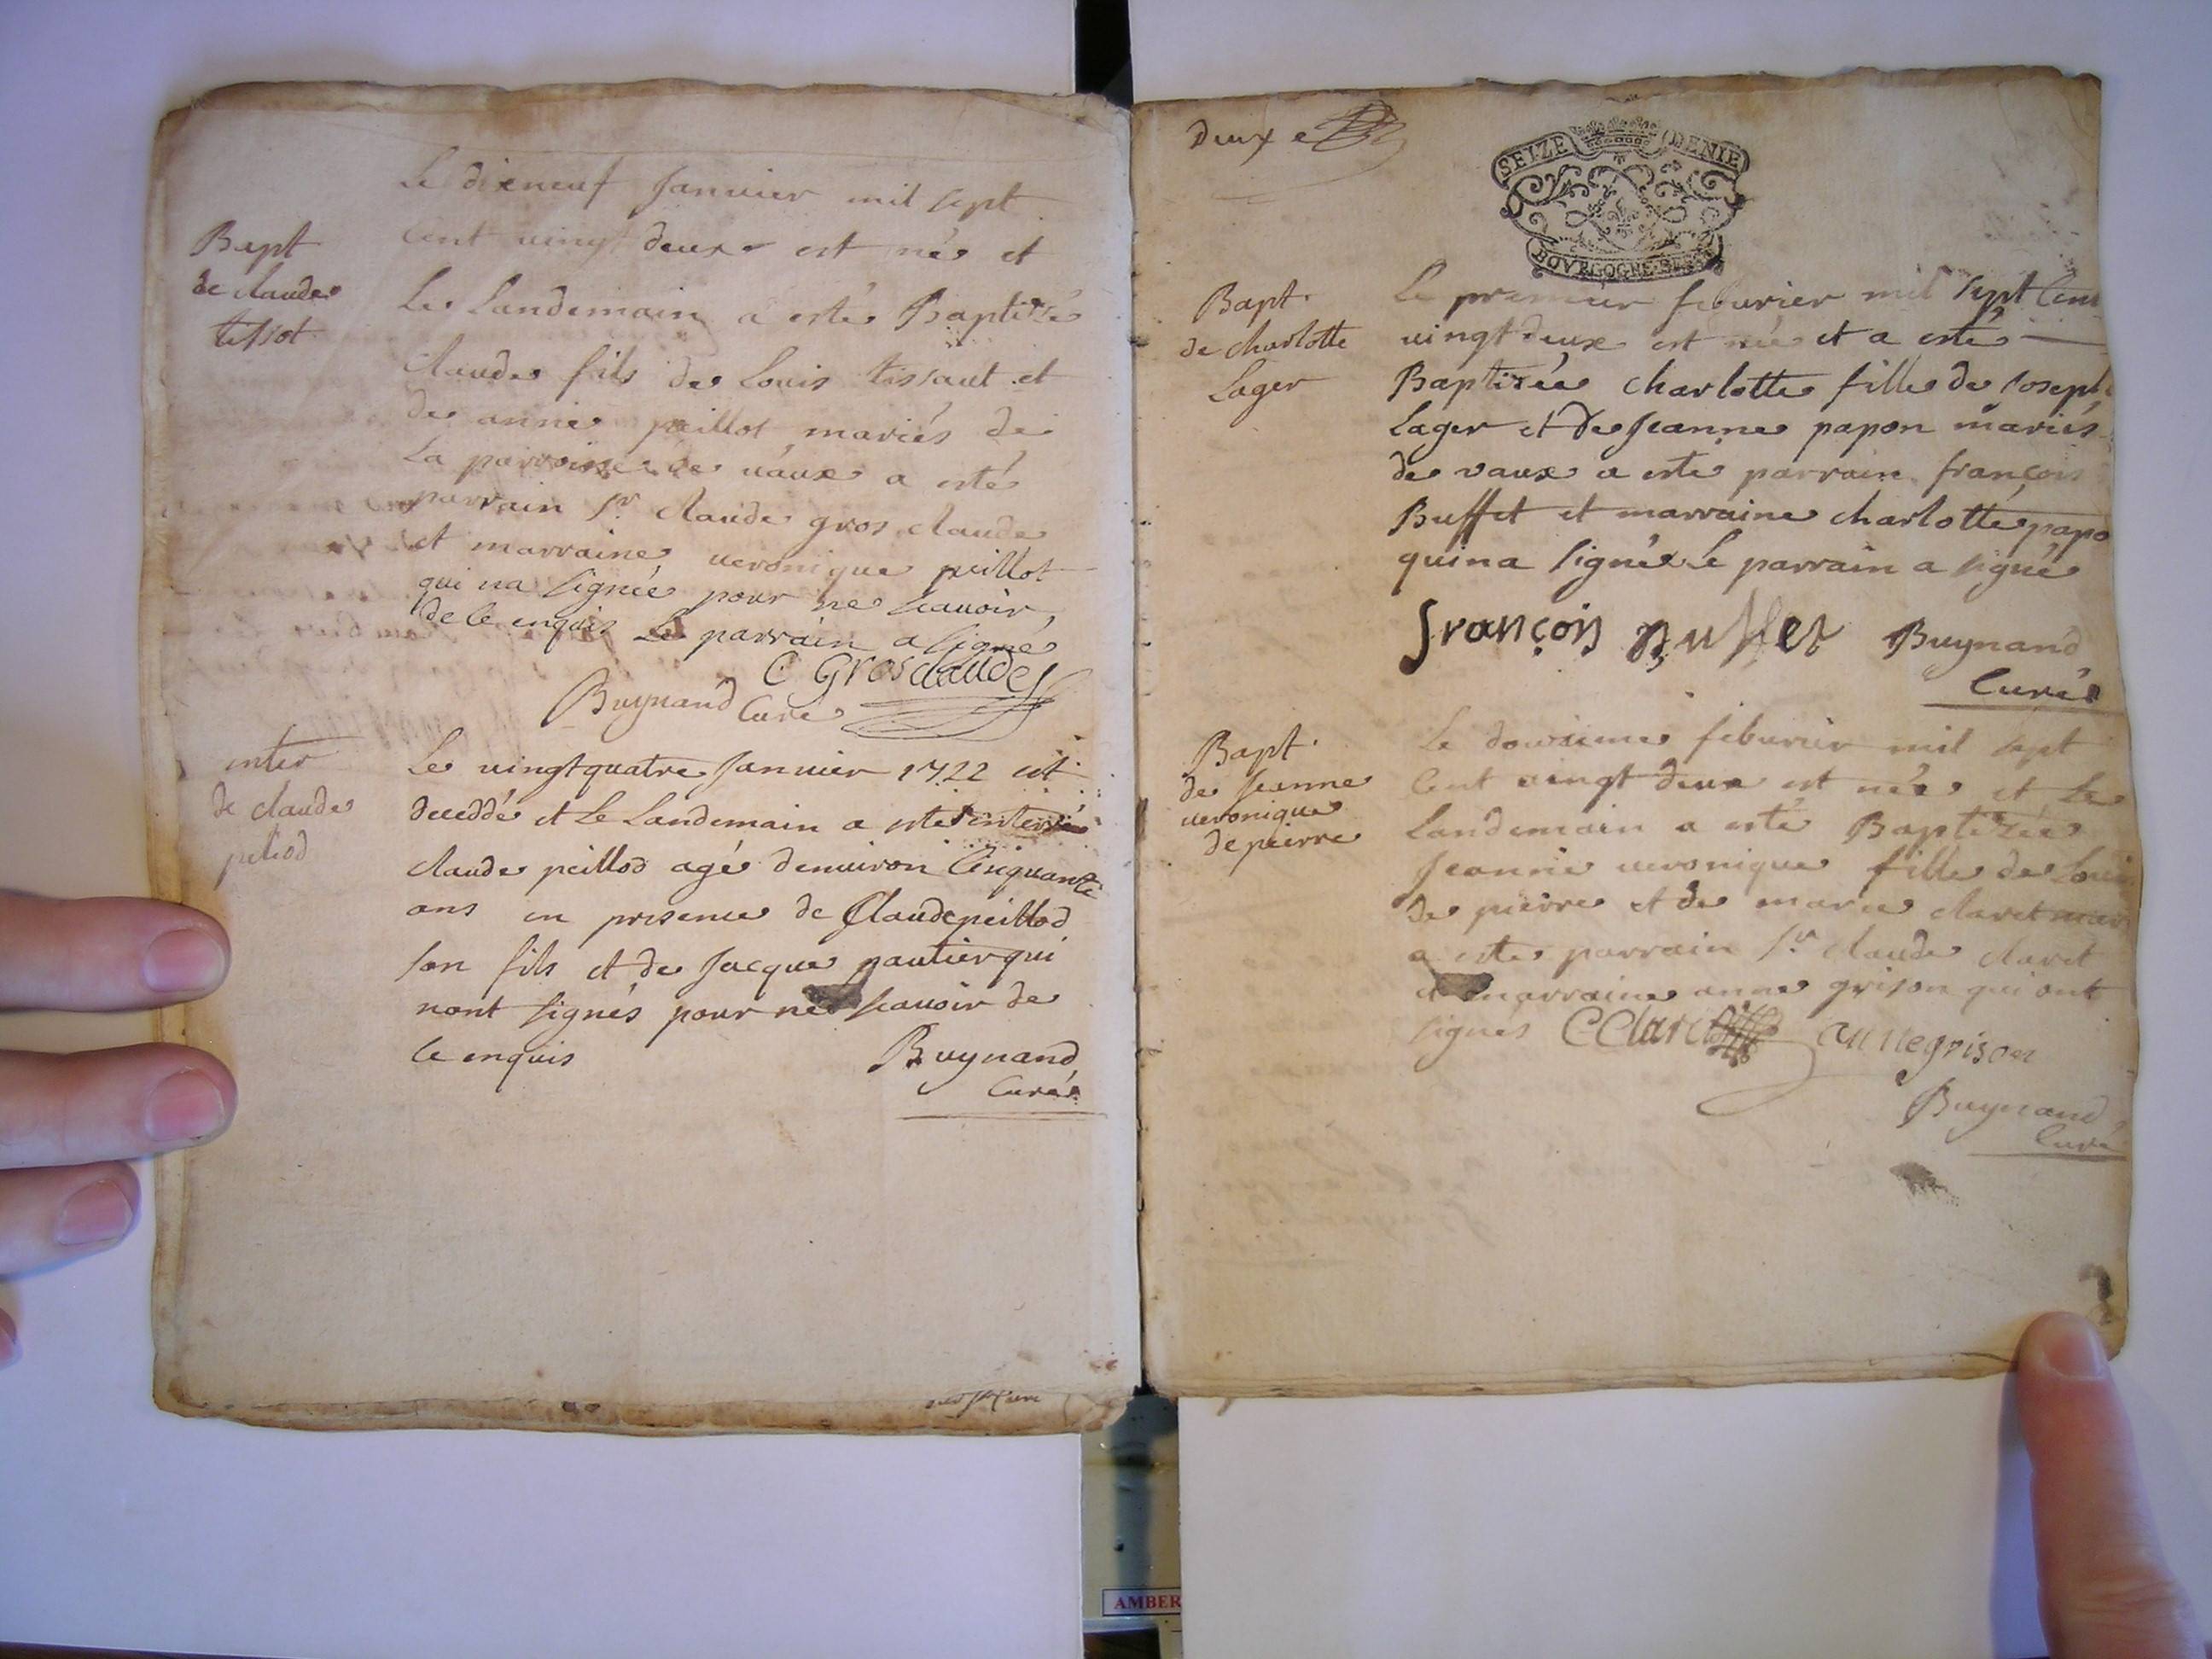 Le dixneuf Janvier mil sept
cent vingt deux est né et
Bapt
de claude
tissot
Le Landemain a esté Baptizé
claude fils de Louis tissaut et
de anne peillot mariés de
La parroisse de vaux a esté
parrain Sr. claude gros claude
et marraine veronique peillot
qui na signée pour ne scavoir
de ce enquis Le parrain a signé
C Grosclaude
Buynand Curé
inter
de claude
peliod
Le vingtquatre Janvier 1722 est
deceddé et Le Landemain a esté interré
claude peillod agé denviron Cinquante
ans en presence de Claude peillod
son fils et de Jacque pautier qui
nont signés pour ne scavoir de
ce enquis
Buynand
Curé
Deux e
SEIZE DENIE
BOURGOGNE
Bapt.
de charlotte
Lager
Le premier febvrier mil sept Cent
vingt deux est née et a esté
Baptizée charlotte fille de Joseph
Lager et de Jeanne papon mariés
de vaux a esté parrain françois
Buffet et marraine charlotte papo
qui na signée Le parrain a signé
françois Buffet
Buynand
Curé
Bapt.
de Jeanne
veronique
depierre
Le douzieme febvrier mil sept
Cent vingt deux est née et Le
Landemain a esté Baptizée
Jeanne veronique fille de Louis
De pierre et de marie claret mar
a esté parrain Sr. claude claret
et marraine anne grison qui ont
signés C Claret anne grison
Buynand
Curé
AMBER